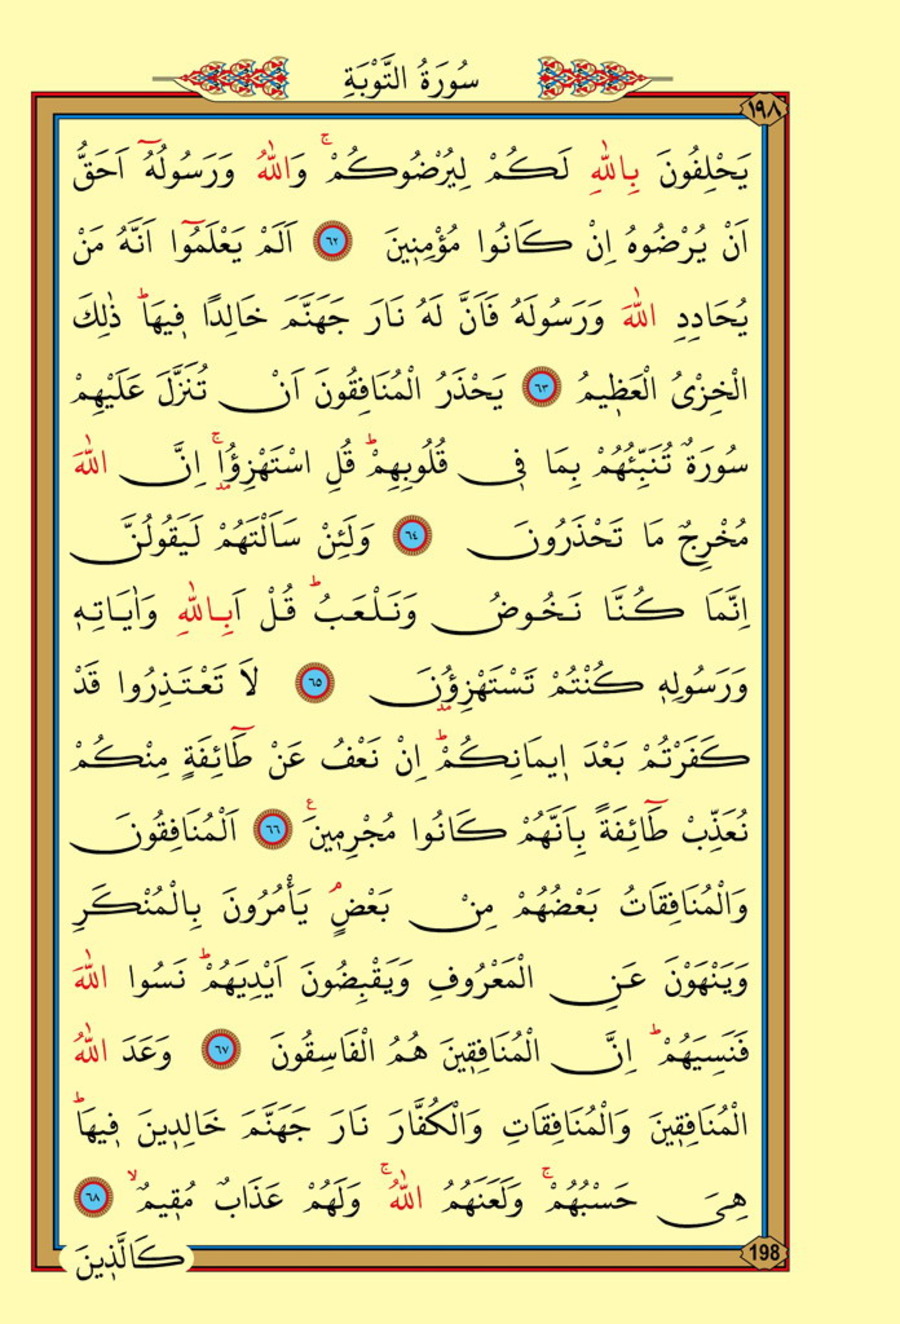 سُورَةُ التَّوْبَةِ
١٩٨
يَحْلِفُونَ بِاللّٰهِ لَكُمْ لِيُرْضُوكُمْۚ وَاللّٰهُ وَرَسُولُهُٓ اَحَقُّ
اَنْ يُرْضُوهُ اِنْ كَانُوا مُؤْمِنٖينَ ٦٢ اَلَمْ يَعْلَمُٓوا اَنَّهُ مَنْ
يُحَادِدِ اللّٰهَ وَرَسُولَهُ فَاَنَّ لَهُ نَارَ جَهَنَّمَ خَالِدًا فٖيهَاؕ ذٰلِكَ
الْخِزْىُ الْعَظٖيمُ ٦٣ يَحْذَرُ الْمُنَافِقُونَ اَنْ تُنَزَّلَ عَلَيْهِمْ
سُورَةٌ تُنَبِّئُهُمْ بِمَا فٖى قُلُوبِهِمْؕ قُلِ اسْتَهْزِؤُ۫اۚ اِنَّ اللّٰهَ
مُخْرِجٌ مَا تَحْذَرُونَ ٦٤ وَلَئِنْ سَاَلْتَهُمْ لَيَقُولُنَّ
اِنَّمَا كُنَّا نَخُوضُ وَنَلْعَبُؕ قُلْ اَبِاللّٰهِ وَاٰيَاتِهٖ
وَرَسُولِهٖ كُنْتُمْ تَسْتَهْزِؤُ۫نَ ٦٥ لَا تَعْتَذِرُوا قَدْ
كَفَرْتُمْ بَعْدَ اٖيمَانِكُمْؕ اِنْ نَعْفُ عَنْ طَٓائِفَةٍ مِنْكُمْ
نُعَذِّبْ طَٓائِفَةً بِاَنَّهُمْ كَانُوا مُجْرِمٖينَ ع ٦٦ اَلْمُنَافِقُونَ
وَالْمُنَافِقَاتُ بَعْضُهُمْ مِنْ بَعْضٍۢ يَأْمُرُونَ بِالْمُنْكَرِ
وَيَنْهَوْنَ عَنِ الْمَعْرُوفِ وَيَقْبِضُونَ اَيْدِيَهُمْؕ نَسُوا اللّٰهَ
فَنَسِيَهُمْؕ اِنَّ الْمُنَافِقٖينَ هُمُ الْفَاسِقُونَ ٦٧ وَعَدَ اللّٰهُ
الْمُنَافِقٖينَ وَالْمُنَافِقَاتِ وَالْكُفَّارَ نَارَ جَهَنَّمَ خَالِدٖينَ فٖيهَاؕ
هِىَ حَسْبُهُمْۚ وَلَعَنَهُمُ اللّٰهُۚ وَلَهُمْ عَذَابٌ مُقٖيمٌۙ ٦٨
198
كَالَّذٖينَ